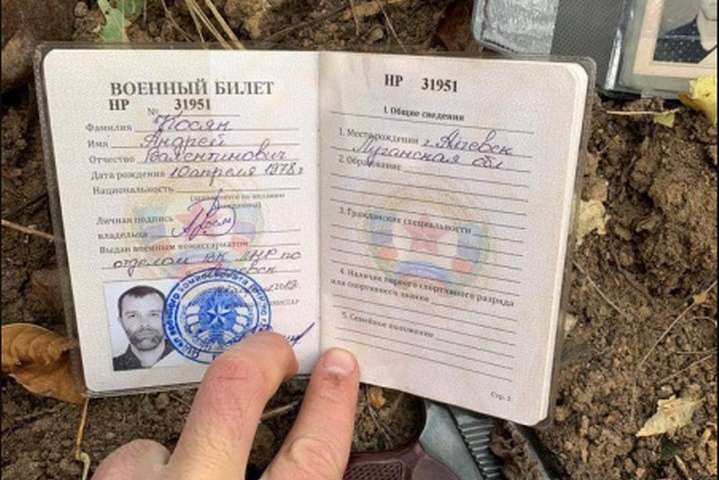 ВОЕННЫЙ БИЛЕТ
НР № 31951
Фамилия Косян
Имя Андрей
Отчество Валентинович
Дата рождения 10 апреля 1978 г
Национальность
(заполняется по желанию
Личная подпись
владельца
Выдан военным комиссариатом
отделом ВК ЛНР по
НР 31951
I. Общие сведения
1. Место рождения г. Алчевск
Луганская обл
2. Образование
3. Гражданские специальности
4. Наличие первого спортивного разряда
или спортивного звания
5. Семейное положение
Стр. 2